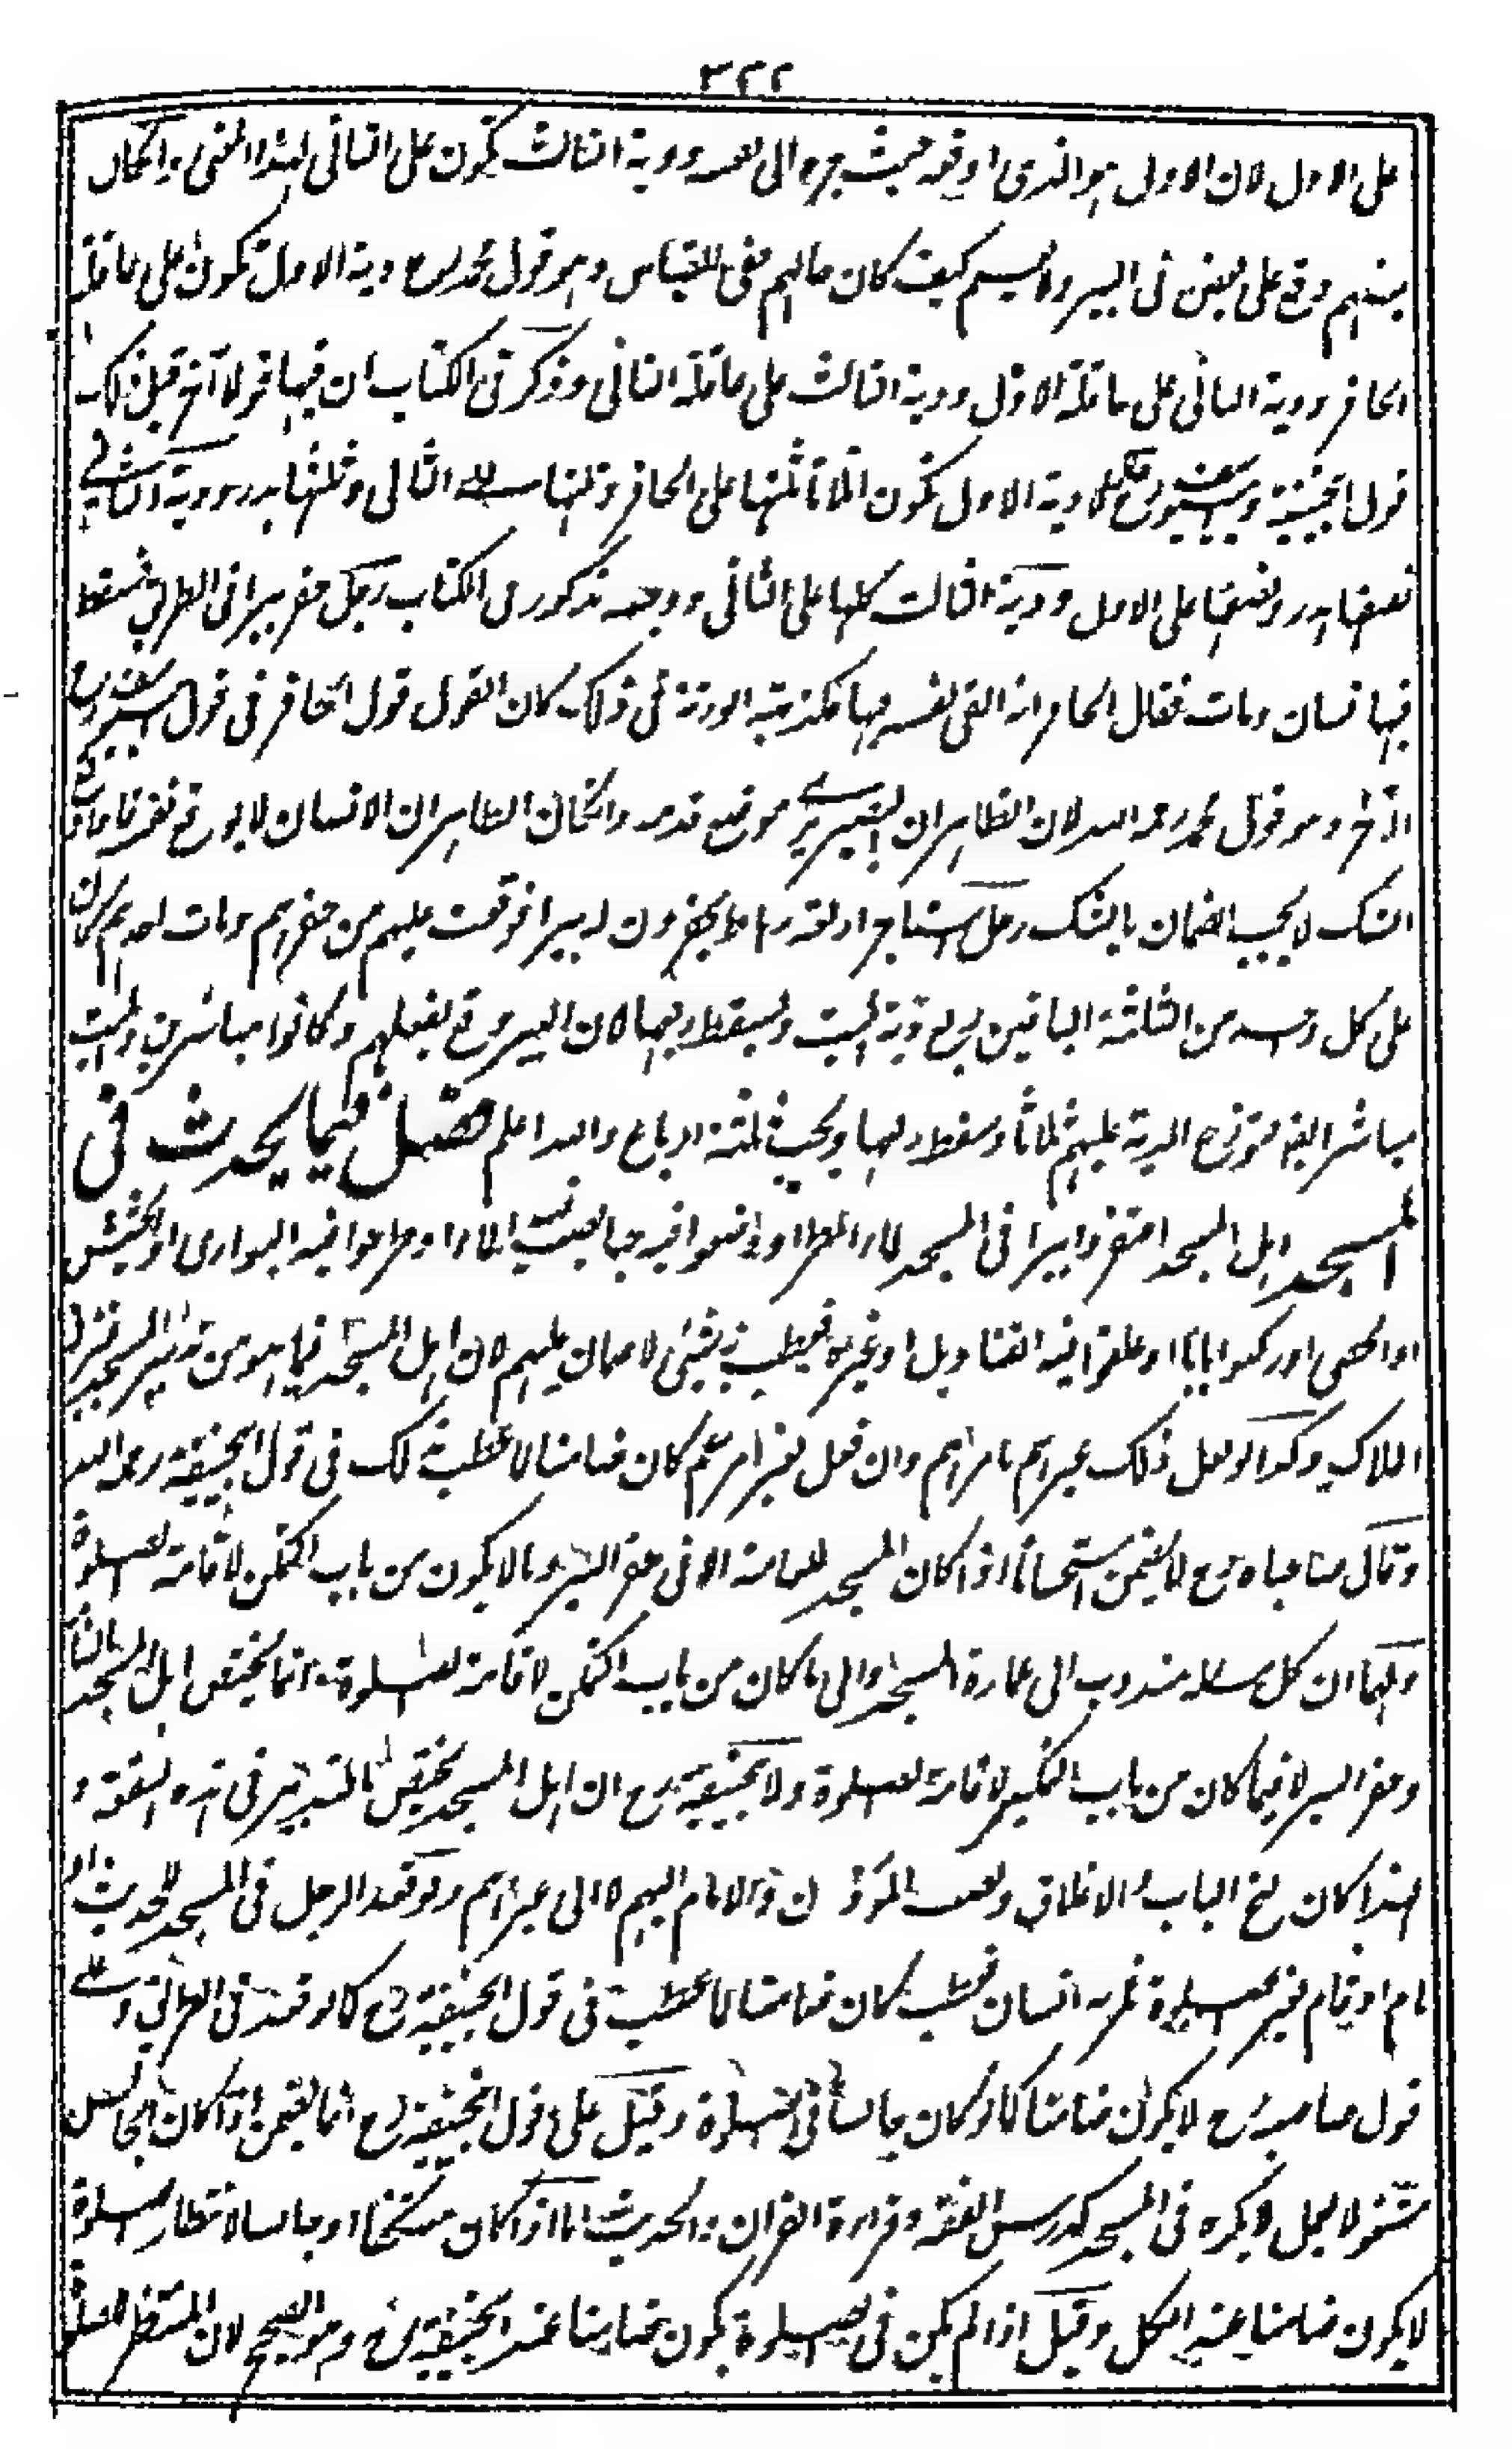 ٣٢٢
على الاول لان الاول هو الذى اوقعه حيث جره الى نفسه ودية الثالث تكون على الثانى لهذا المعنى وان كان
بعضهم وقع على بعض فى البير ولم يعلم كيف كان حالهم ففى القياس وهو قول محمد رح دية الاول تكون على عاقلة
الحافر ودية الثانى على عاقلة الاول ودية الثالث على عاقلة الثانى وذكر فى الكتاب ان فيها قولا آخر قيل ذاك
قول ابيحنيفة وابى يوسف رح دية الاول تكون اثلاثا ثلثها على الحافر وثلثها على الثانى وثلثها هدر ودية الثانى
نصفها هدر ونصفها على الاول ودية الثالث كلها على الثانى ووجهه مذكور فى الكتاب رجل حفر بيرا فى الطريق فسقط
فيها انسان ومات فقال الحافر انه القى نفسه فيها وكذبته الورثة فى ذلك كان القول قول الحافر فى قول ابى يوسف رح
الآخر وهو قول محمد رحمه الله لان الظاهر ان البصير يرى موضع قدمه وان كان الظاهر ان الانسان لا يوقع نفسه فاذا وقع
الشك لا يجب الضمان بالشك رجل استاجر اربعة رهط يحفرون له بيرا فوقعت عليهم من حفرهم ومات احدهم كان
على كل واحد من الثلثة الباقين ربع دية الميت ويسقط ربعها لان البير وقع بفعلهم وكانوا مباشرين والميت
مباشر ايضا فتوزع الدية عليهم ارباعا وسقط ربعها ويجب ثلثة ارباع والله اعلم فصل فيما يحدث فى
المسجد اهل المسجد احتفروا بيرا فى المسجد لماء المطر او وضعوا فيه حبا يصب فيه الماء او طرحوا فيه البوارى او الحشيش
او الحصى او ركبوا بابا او علقوا فيه القناديل او غيره فعطب به شئ لا ضمان عليهم لان اهل المسجد فيما هو من تدبير المسجد بمنزلة
الملاك وكذا لو فعل ذلك غيرهم بامرهم وان فعل بغير امرهم كان ضامنا لما عطب فى ذلك فى قول ابيحنيفة رحمه الله
وقال صاحباه رح لا يضمن استحسانا اذا كان المسجد للعامة الا فى حفر البير وما لا يكون من باب التمكن لاقامة الصلوة
ولهما ان كل مسلم مندوب الى عمارة المسجد والى ما كان من باب التمكن لاقامة الصلوة وانما يختص اهل المسجد بالبناء
وحفر البير لا فيما كان من باب التمكين لاقامة الصلوة ولابيحنيفة رح ان اهل المسجد يختص بالتدبير فى هذه البقعة و
لهذا كان فتح الباب والاغلاق ونصب المؤذن والامام اليهم لا الى غيرهم ولو قعد الرجل فى المسجد لحديث او
نام او قام لغير الصلوة فمر به انسان فعطب كان ضامنا لما عطب فى قول ابيحنيفة رح كما لو قعد فى الطريق وعلى
قول صاحبيه رح لا يكون ضامنا كما لو كان جالسا فى الصلوة وقيل على قول ابيحنيفة رح انما يضمن اذا كان الجالس
مشغولا بعمل لا يكره فى المسجد كدرس الفقه وقراءة القرآن والحديث اما اذا كان معتكفا او جالسا لانتظار الصلوة
لا يكون ضامنا عند الكل وقيل اذا لم يكن فى الصلوة يكون ضامنا عند ابيحنيفة رح وهو الصحيح لان المنتظر للصلوة